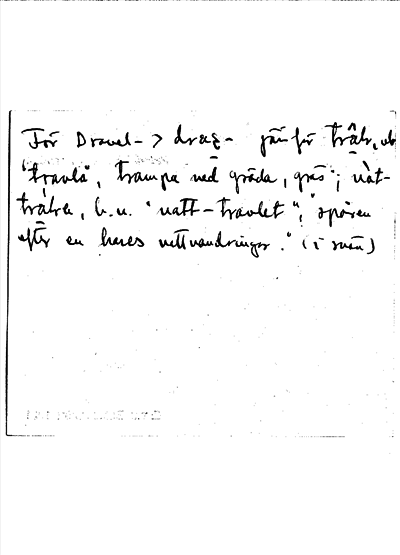 För Dravel- > drag- jämför trålr, vb
"travla", trampa ned gröda, gräs"; nàt-
tràlre, b.u. "natt-travlet", "spåren
efter en hares nattvandringar." (i snön)